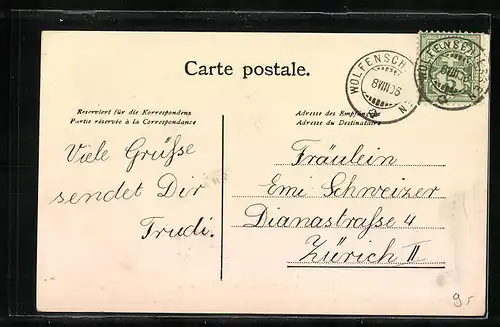 Carte postale.
Reserviert für die Korrespondenz
Partie réservée à la Correspondance
Adresse des Empfängers
Adresse du Destinataire
Viele Grüsse
sendet Dir
Trudi.
Fräulein
Emi Schweizer
Dianastrasse 4
Zürich II
8 VIII 06
5